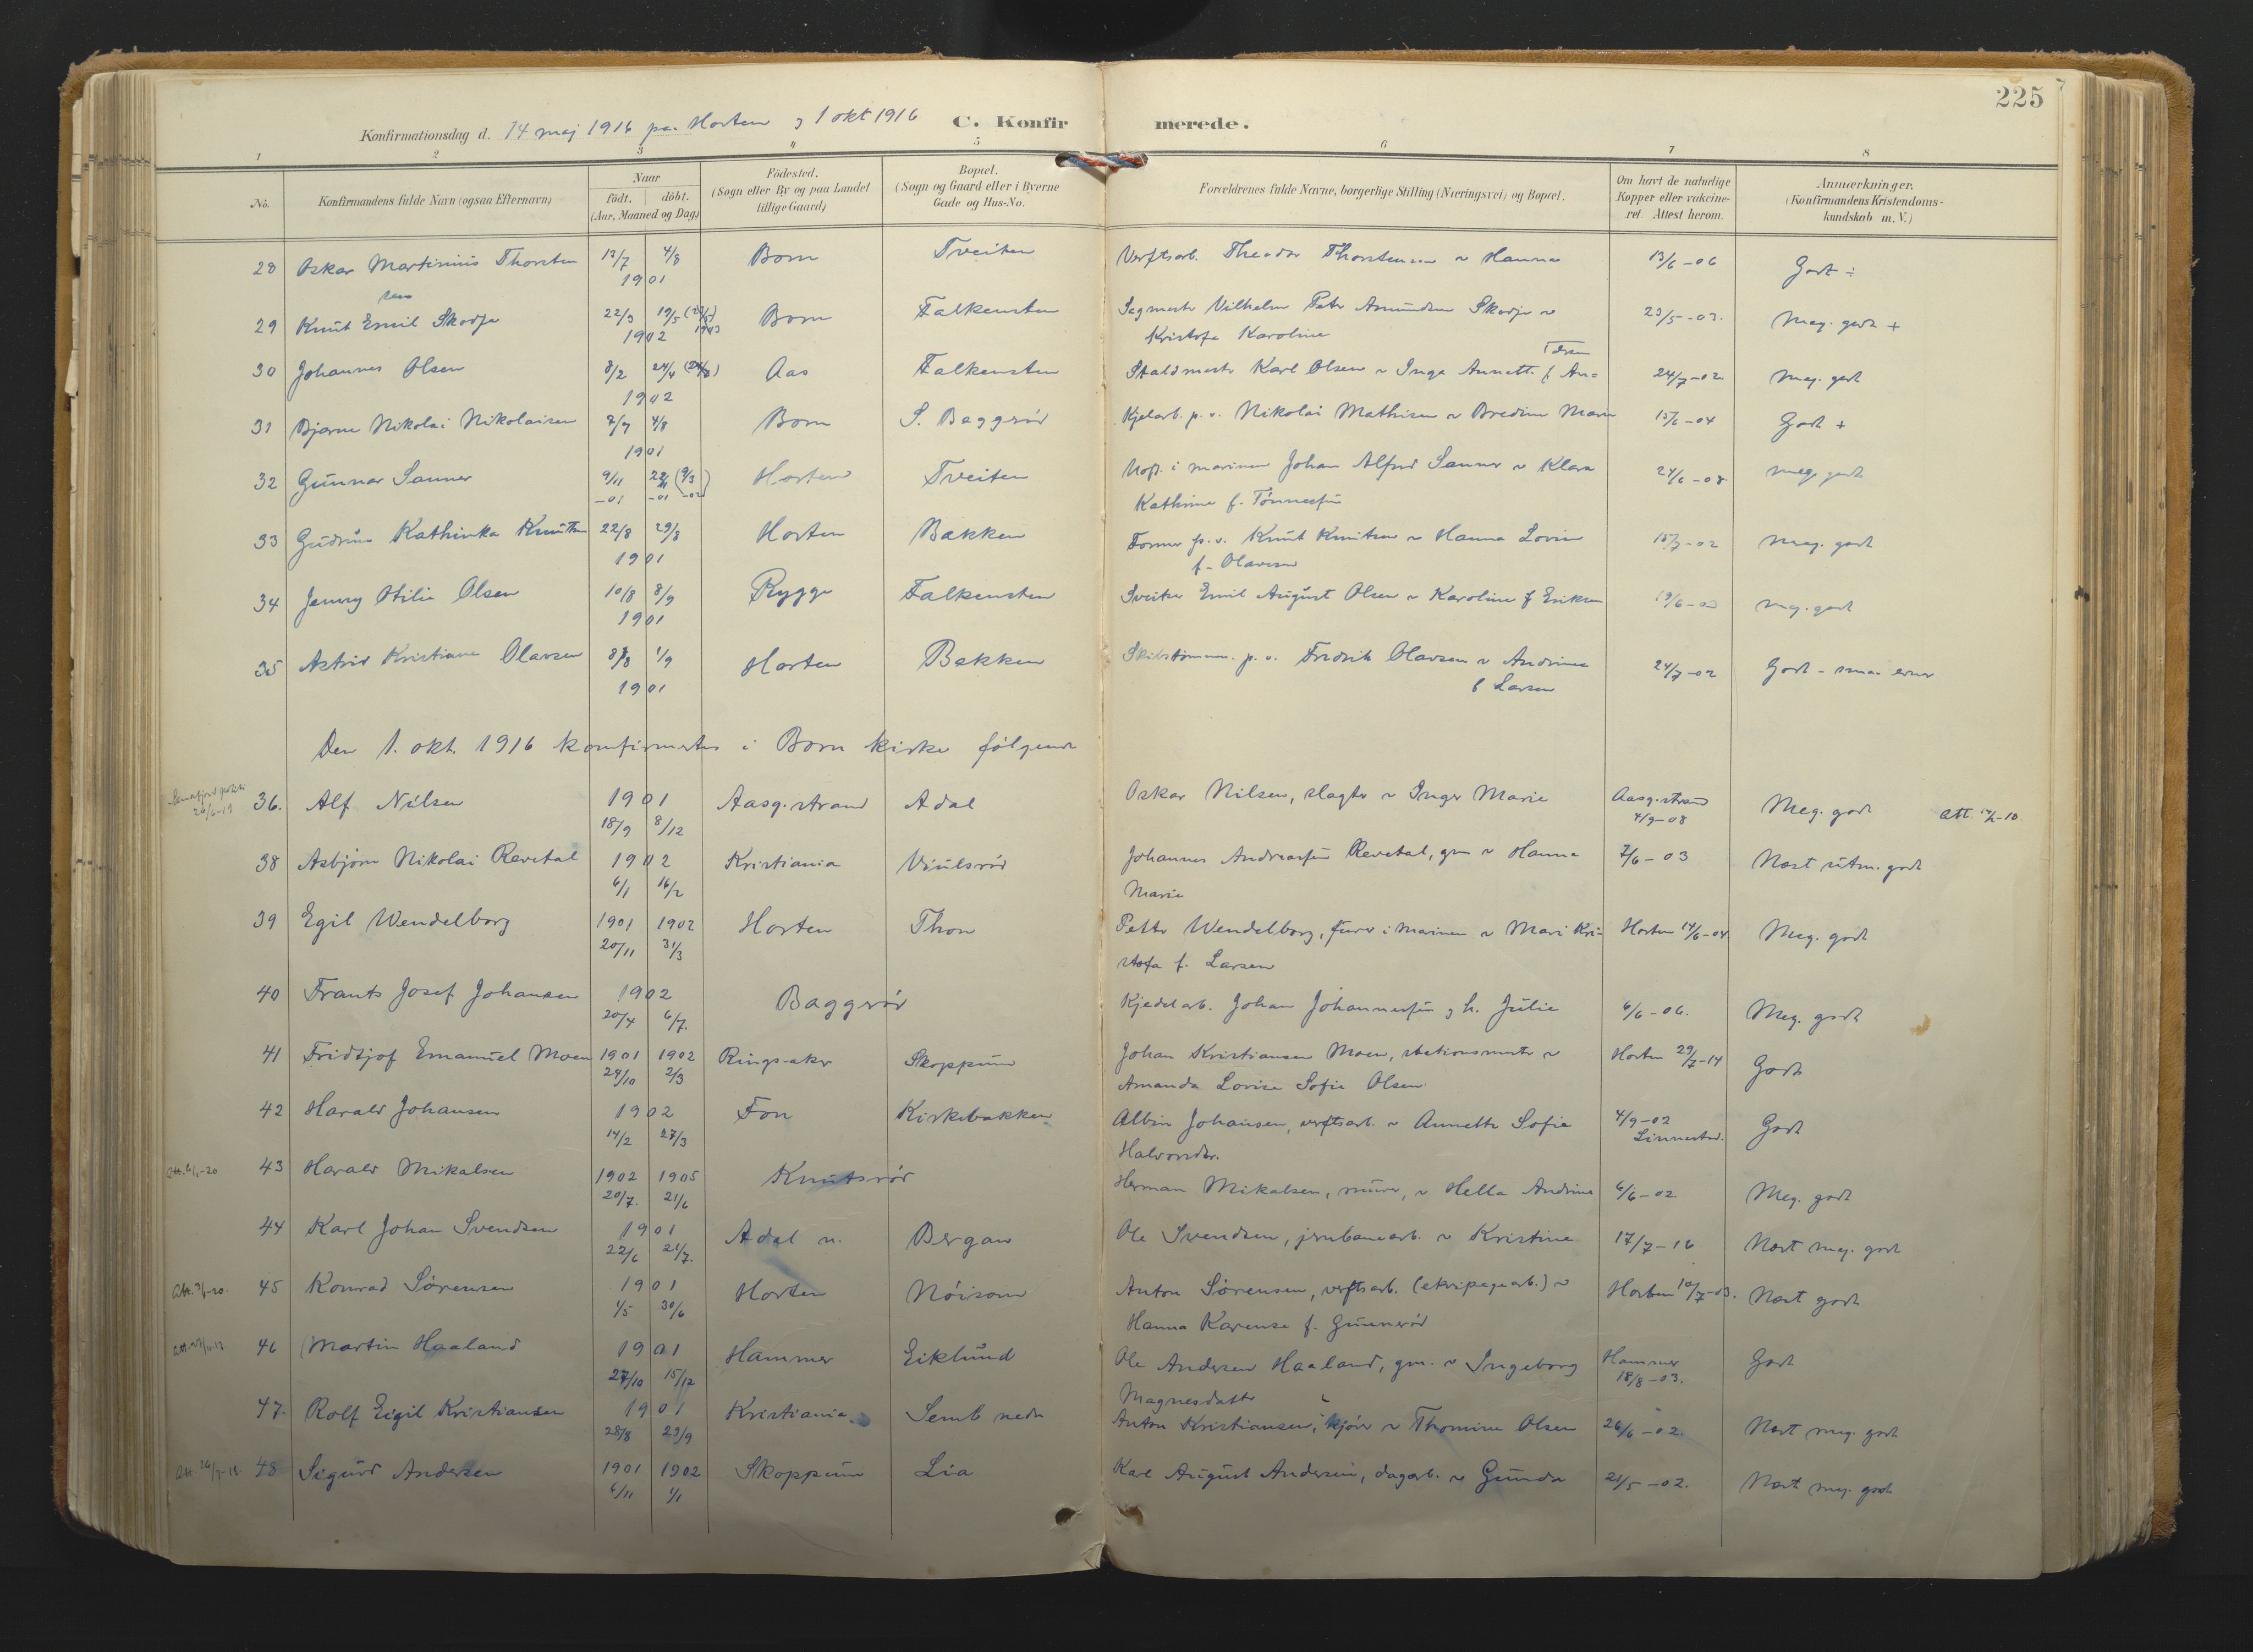 225
Konfirmationsdag d. 14 maj 1916 paa Horten og 1 okt 1916 C. Konfirmerede.
1 2 3 4 5 6 7 8
No. Konfirmandens fulde Navn (ogsaa Efternavn) Naar födt. döbt. (Aar, Maaned og Dag.) Födested. (Sogn eller By og paa Landet tillige Gaard) Bopæl. (Sogn og Gaard eller i Byerne Gade og Hus-No. Forældrenes fulde Navne, borgerlige Stilling (Næringsvei) og Bopæl. Om havt de naturlige Kopper eller vakcineret Attest herom. Anmærkninger. (Konfirmandens Kristendomskundskab m. V.)
28 Oskar Martinius Thorsten 13/7 4/8 Borre Tveiten Verftsarb. Theodor Thorstensen v Hanna 13/6-06 Godt ÷
sen 1901
29 Knut Emil Skodje 22/3 19/5 Borre Falkensten Sagmester Vilhelm Peter Amundsen Skodje v 23/5-03. Meg. godt +
1902 1903 Kristofa Karoline
30 Johannes Olsen 8/2 24/4 Aas Falkensten Staldmester Karl Olsen v Inga Annette f. An= 24/7-02. Meg. godt
1902 dersen
31 Bjarne Nikolai Nikolaisen 2/7 4/8 Borre S. Baggeröd Kjelarb. p. v. Nikolai Mathisen v Bredine Marie 15/6-04 Godt +
1901
32 Gunnar Sanner 9/11 22/11 (9/3) Horten Tveiten Uoff. i marinen Johan Alfred Sanner v Klara 24/6-08 meg. godt
-01 -01 -02 Kathrine f. Tönnessen
33 Gudrun Kathinka Knutsen 22/8 29/8 Horten Bakken Former p. v. Knut Knutsen v Hanna Lovise 15/7-02 meg. godt
1901 f. Olavesen
34 Jenny Otilie Olsen 10/8 8/9 Rygge Falkensten Sveitser Emil August Olsen v Karoline f Eriksen 19/6-03 meg. godt
1901
35 Astrid Kristiane Olavsen 8/8 1/9 Horten Bakken Skibstömmerm. p. v. Fredrik Olavsen v Andrine 24/7-02 Godt - smaa evner
1901 f Larsen
Den 1. okt. 1916 konfirmertes i Borre kirke fölgende
26/6-19 36. Alf Nilsen 1901 Aasg.strand Adal Oskar Nilsen, slagter v Inger Marie Aasg.strand Meg. godt
18/9 8/12 4/9-08
38 Asbjörn Nikolai Revetal 1902 Kristiania Viulsröd Johannes Andreassen Revetal, grm v Hanna 7/6-03 Næst utm. godt
6/1 16/2 Marie
39 Egil Wendelborg 1901 1902 Horten Thon Petter Wendelborg, furer i marinen v Mari Kri- Horten 14/6-04. Meg. godt
20/11 31/3 stofa f. Larsen
40 Frants Josef Johansen 1902 Baggeröd Kjedelarb. Johan Johannessen og h. Julie 6/6-06. Meg. godt
20/4 6/7.
41 Fridtjof Emanuel Moen 1901 1902 Rings-aker Skoppum Johan Kristiansen Moen, stationsmester v Horten 29/7-14 Godt
24/10 2/3 Amanda Lovise Sofie Olsen
42 Harald Johansen 1902 Fon Kirkebakken Albin Johansen, verftsarb. v Annette Sofie 4/9-02 Godt
14/2 27/3 Halvorsdtr. Linnestad.
43 Harald Mikalsen 1902 1905 Knutsröd Herman Mikalsen, murer, v Hella Andrine 6/6-02. Meg. godt
20/7. 21/6
44 Karl Johan Svendsen 1901 Adal n. Bergan Ole Svendsen, jernbanearb. v Kristine 17/7-16 Næst meg. godt
22/6 21/7.
45 Konrad Sörensen 1901 Horten Nöisom Anton Sörensen, verftsarb. (ekvipagearb.) v Horten 10/7-03. Næst godt
1/5 30/6 Hanna Karense f. Gunneröd
46 Martin Haaland 1901 Hammer Eiklund Ole Andersen Haaland, grm. v Ingeborg Hammer Godt
27/10 15/12 Magnesdatter 18/8-03.
47. Rolf Eigil Kristiansen 1901 Kristiania. Semb nedre Anton Kristiansen, kjörer v Thomine Olsen 26/6-02. Næst meg. godt
28/8 29/9
Att. 26/7-18. 48 Sigurd Andersen 1901 1902 Skoppum Lia Karl August Andersen, dagarb. v Gunda 21/5-02. Næst meg. godt
6/11 1/1